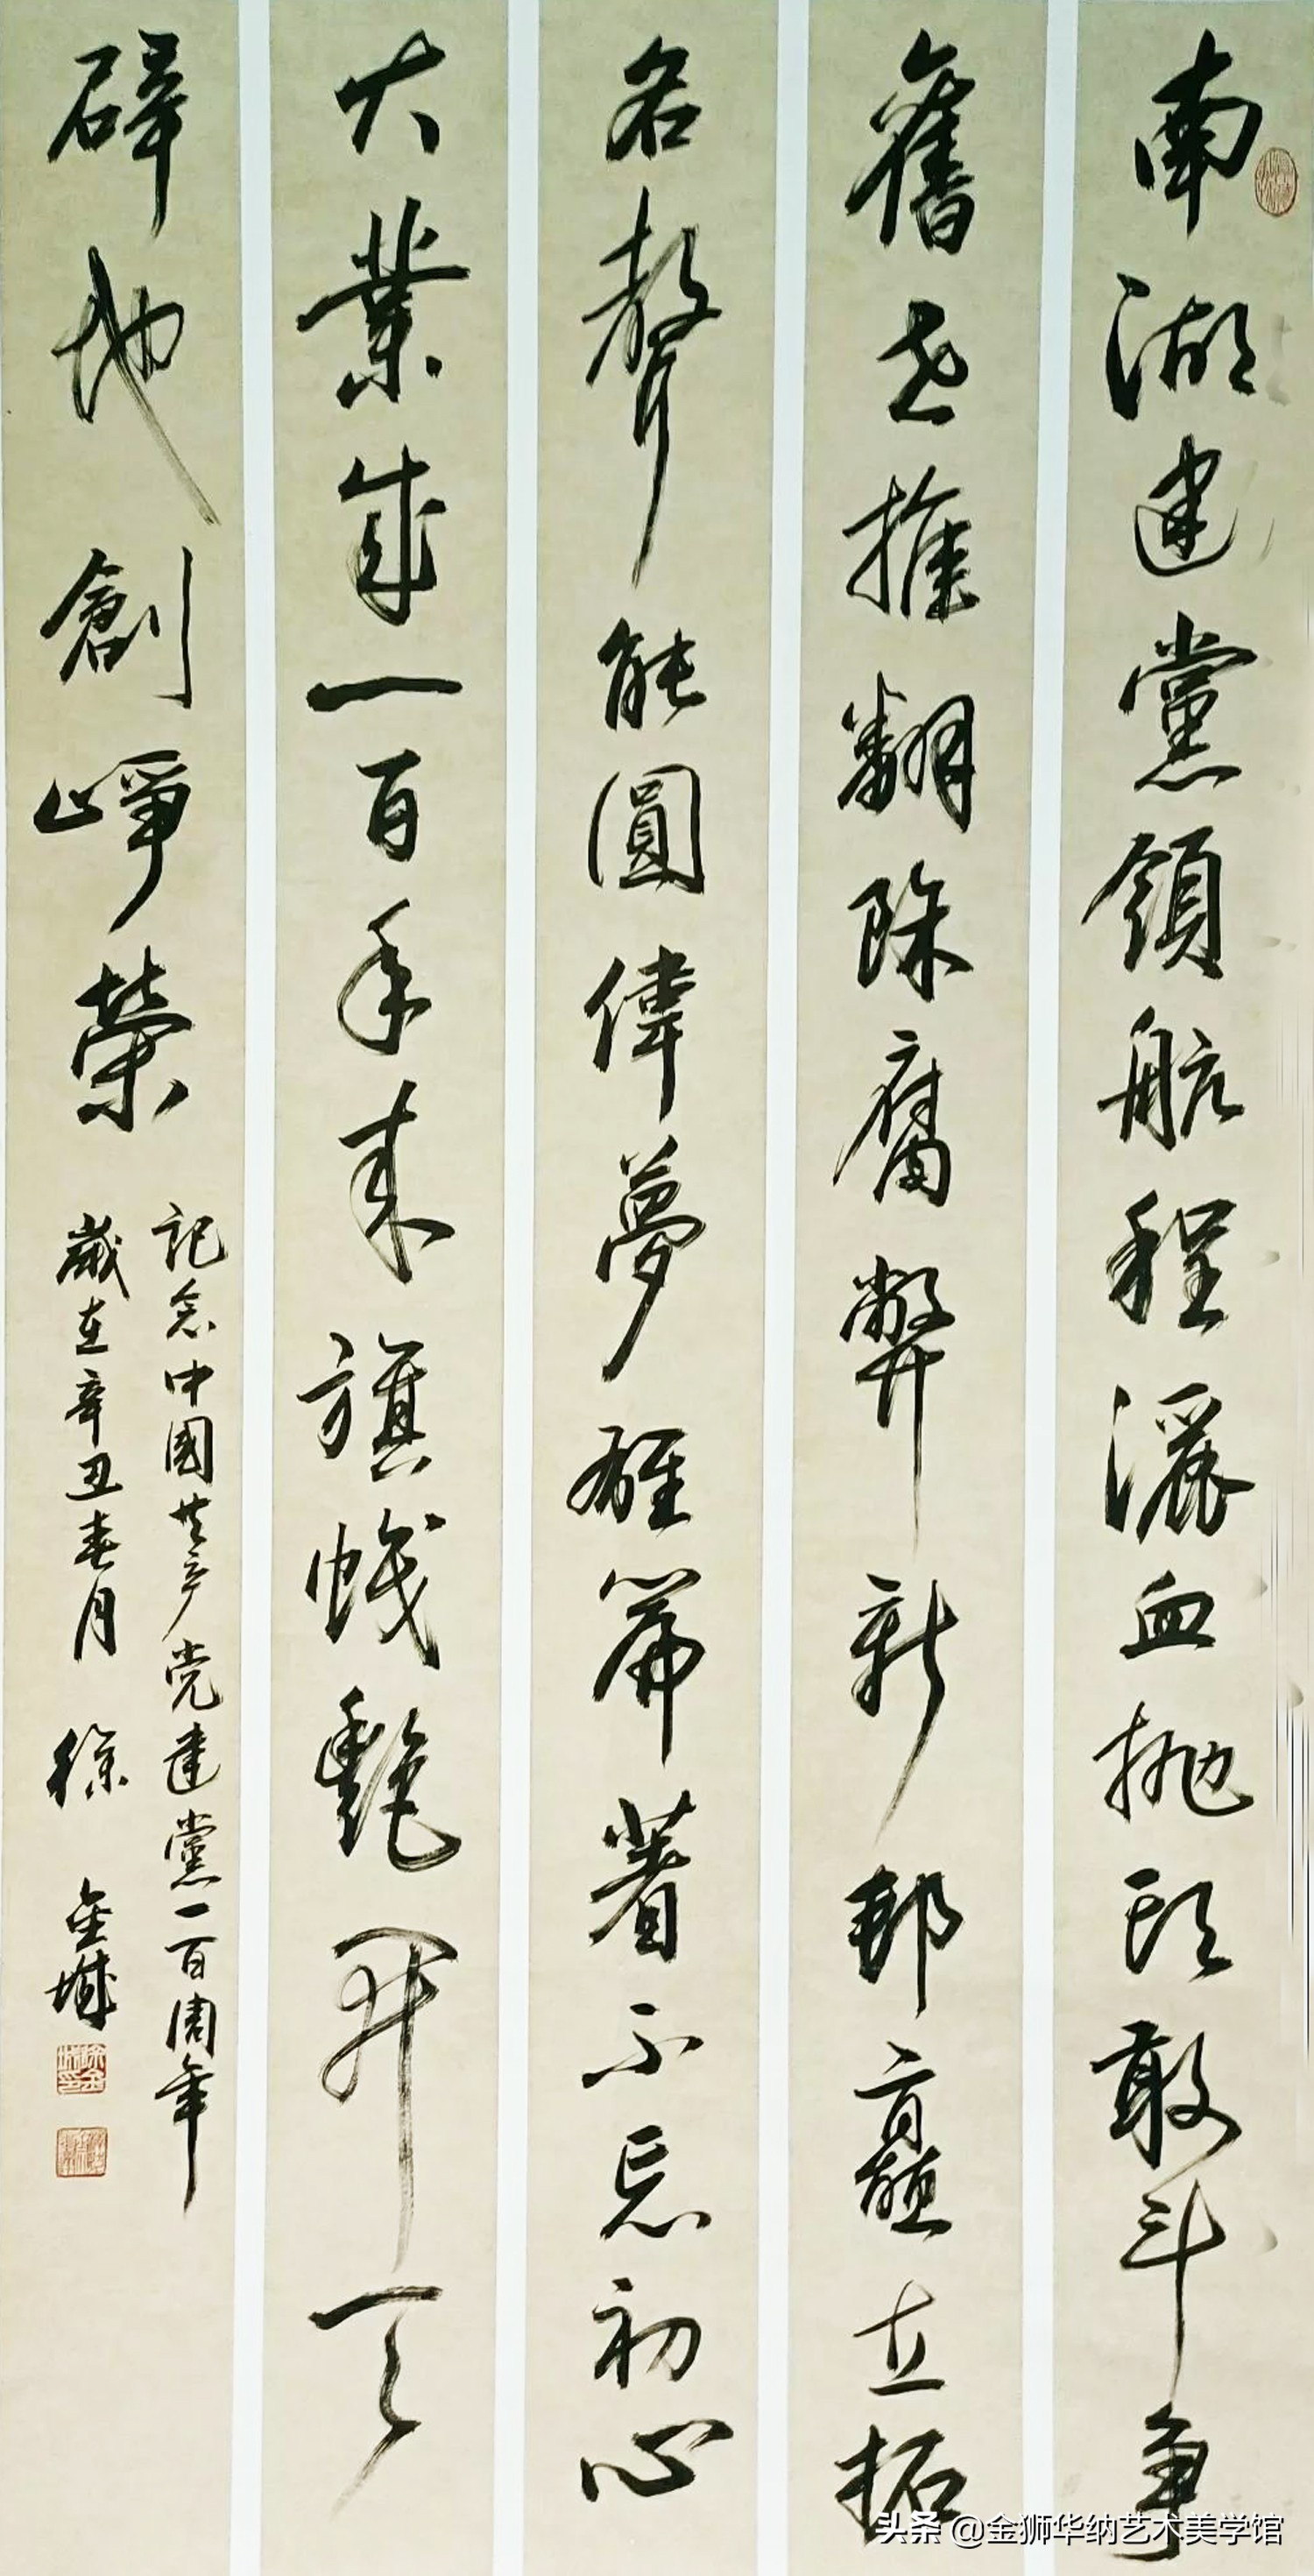 南湖建黨領航程灑血抛頭敢斗爭
舊世推翻除腐弊新邦矗立拓
名聲能圓偉夢雄篇著不忘初心
大業成一百年来旗幟艷開天
辟地創崢嶸
記念中國共产党建黨一百周年
歲在辛丑春月 徐金城
头条 @金狮华纳艺术美学馆